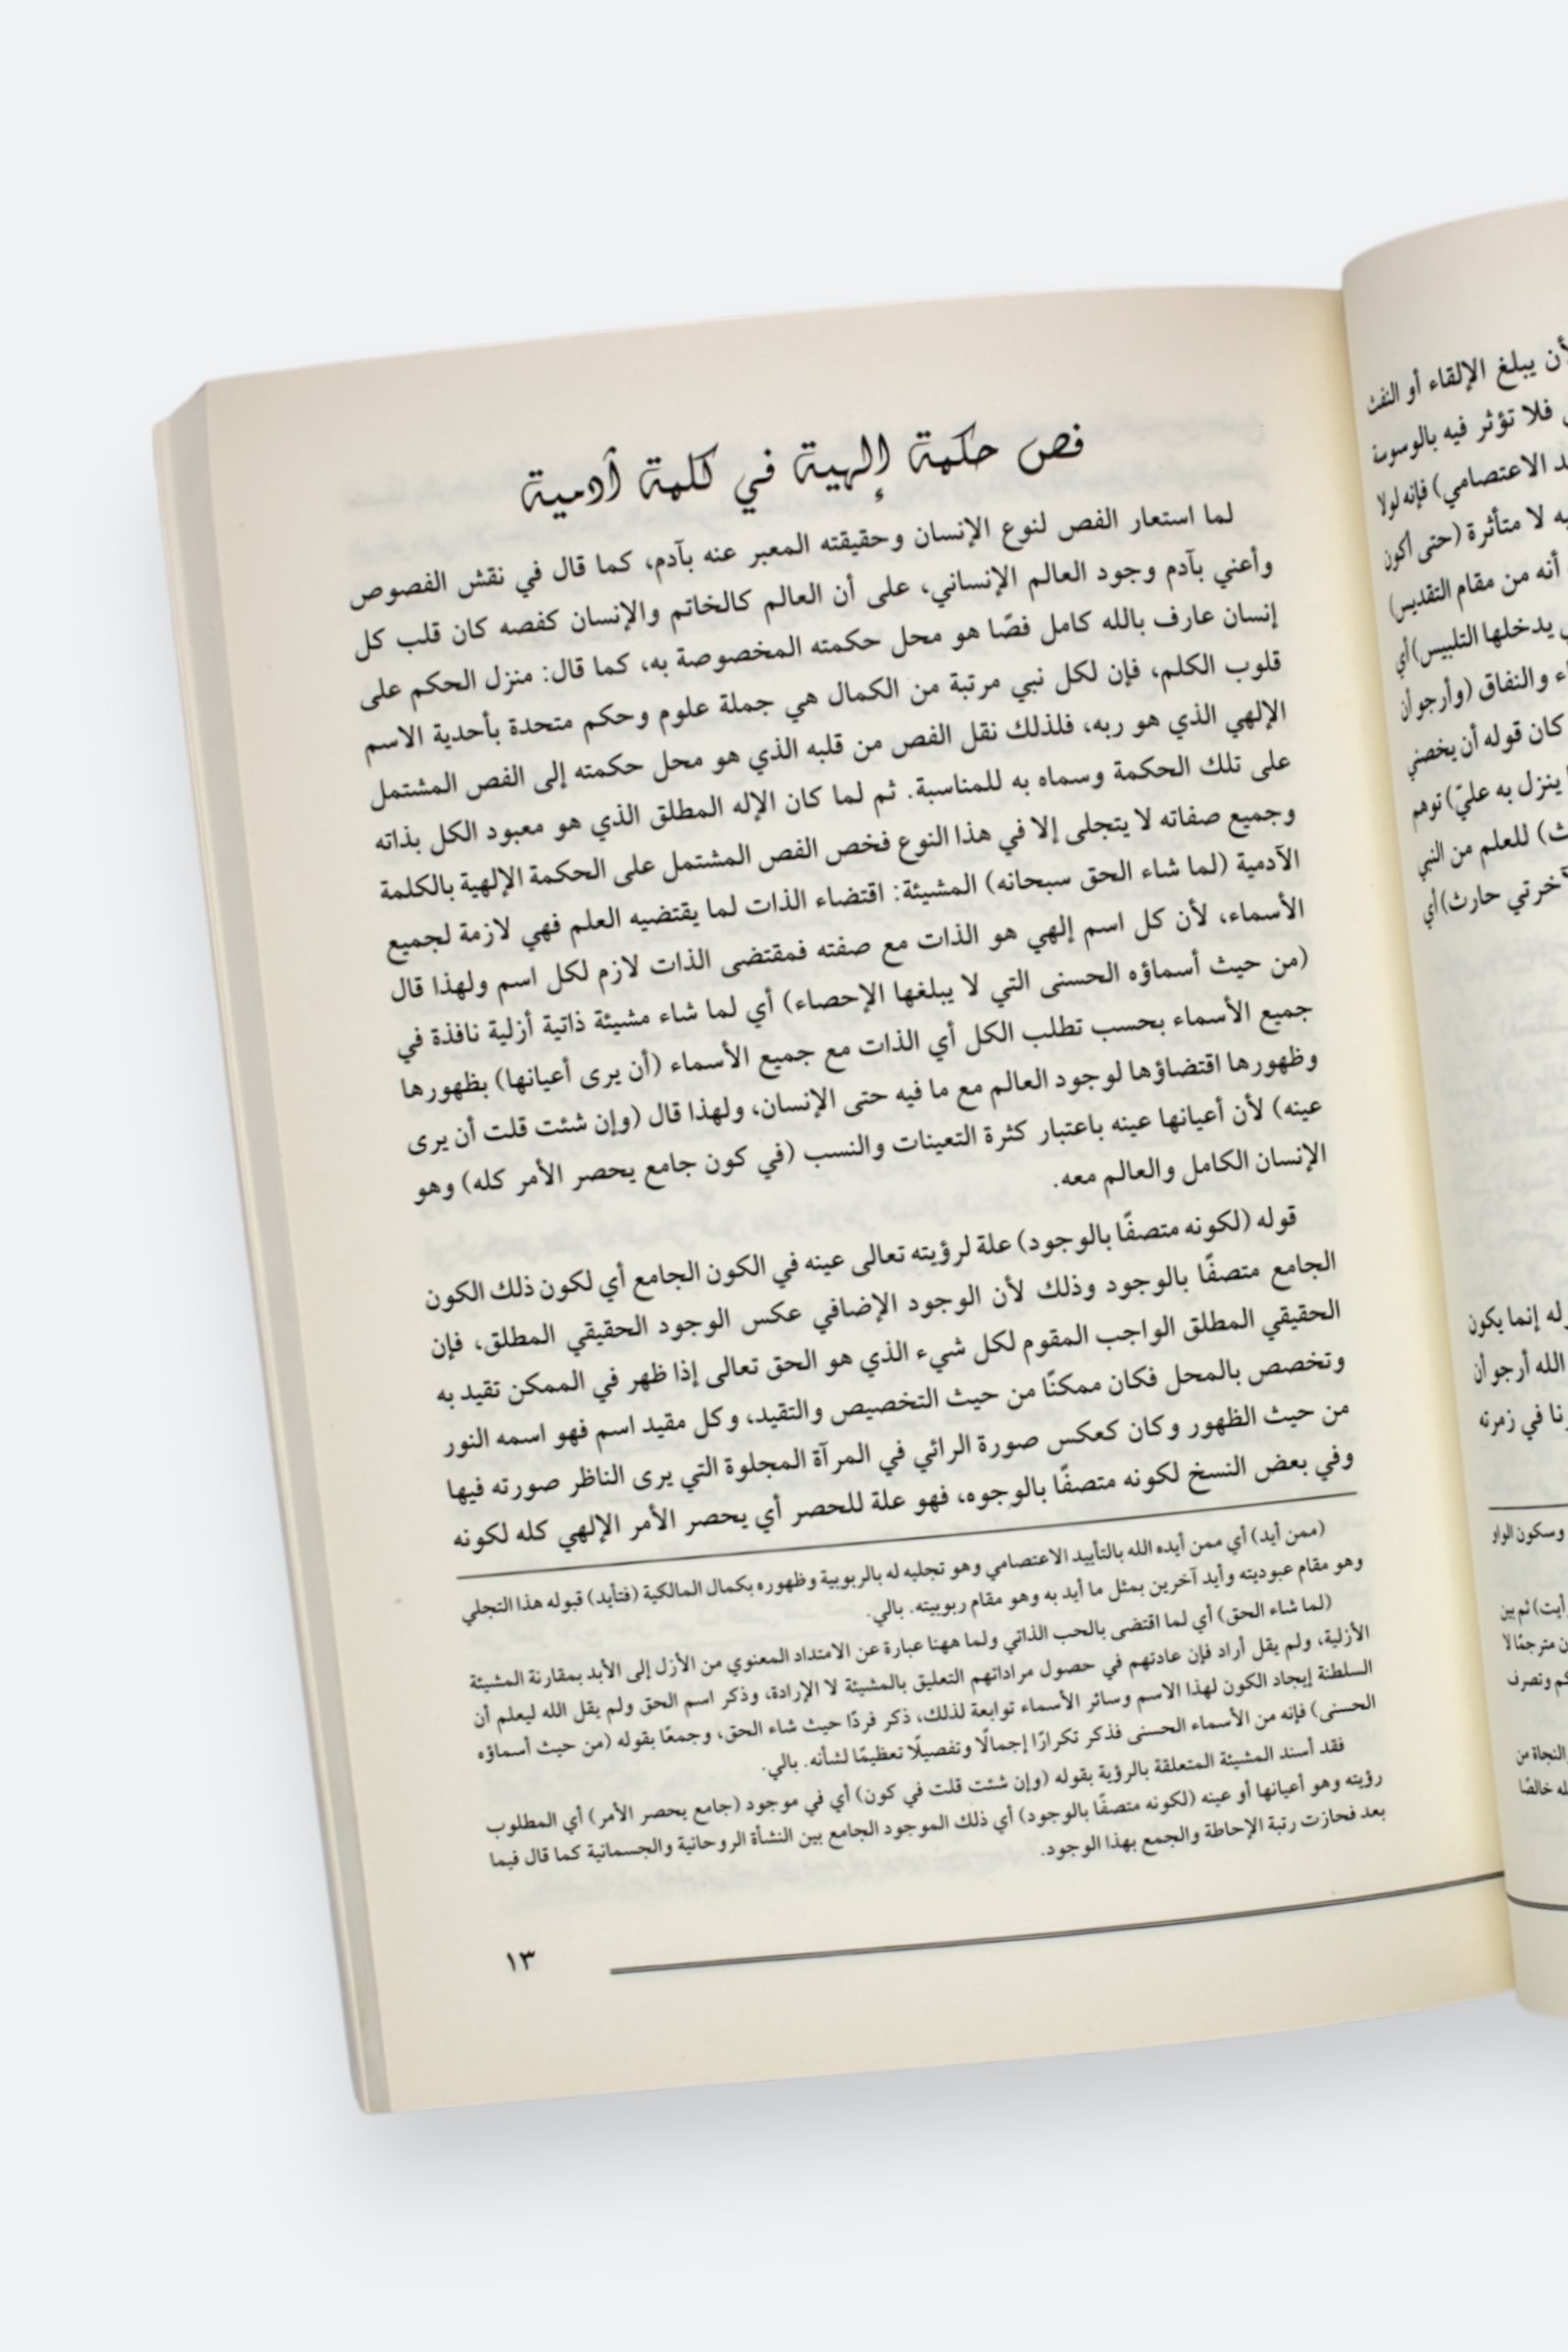 فص حكمة إلهية في كلمة آدمية
لما استعار الفص لنوع الإنسان وحقيقته المعبر عنه بآدم، كما قال في نقش الفصوص
وأعني بآدم وجود العالم الإنساني، على أن العالم كالخاتم والإنسان كفصه كان قلب كل
إنسان عارف بالله كامل فصًا هو محل حكمته المخصوصة به، كما قال: منزل الحكم على
قلوب الكلم، فإن لكل نبي مرتبة من الكمال هي جملة علوم وحكم متحدة بأحدية الاسم
الإلهي الذي هو ربه، فلذلك نقل الفص من قلبه الذي هو محل حكمته إلى الفص المشتمل
على تلك الحكمة وسماه به للمناسبة. ثم لما كان الإله المطلق الذي هو معبود الكل بذاته
وجميع صفاته لا يتجلى إلا في هذا النوع فخص الفص المشتمل على الحكمة الإلهية بالكلمة
الآدمية (لما شاء الحق سبحانه) المشيئة: اقتضاء الذات لما يقتضيه العلم فهي لازمة لجميع
الأسماء، لأن كل اسم إلهي هو الذات مع صفته فمقتضى الذات لازم لكل اسم ولهذا قال
(من حيث أسماؤه الحسنى التي لا يبلغها الإحصاء) أي لما شاء مشيئة ذاتية أزلية نافذة في
جميع الأسماء بحسب تطلب الكل أي الذات مع جميع الأسماء (أن يرى أعيانها) بظهورها
وظهورها اقتضاؤها لوجود العالم مع ما فيه حتى الإنسان، ولهذا قال (وإن شئت قلت أن يرى
عينه) لأن أعيانها عينه باعتبار كثرة التعينات والنسب (في كون جامع يحصر الأمر كله) وهو
الإنسان الكامل والعالم معه.
قوله (لكونه متصفًا بالوجود) علة لرؤيته تعالى عينه في الكون الجامع أي لكون ذلك الكون
الجامع متصفًا بالوجود وذلك لأن الوجود الإضافي عكس الوجود الحقيقي المطلق، فإن
الحقيقي المطلق الواجب المقوم لكل شيء الذي هو الحق تعالى إذا ظهر في الممكن تقيد به
وتخصص بالمحل فكان ممكنًا من حيث التخصيص والتقيد، وكل مقيد اسم فهو اسمه النور
من حيث الظهور وكان كعكس صورة الرائي في المرآة المجلوة التي يرى الناظر صورته فيها
وفي بعض النسخ لكونه متصفًا بالوجوه، فهو علة للحصر أي يحصر الأمر الإلهي كله لكونه
(ممن أيد) أي ممن أيده الله بالتأييد الاعتصامي وهو تجليه له بالربوبية وظهوره بكمال المالكية (فتأيد) قبوله هذا التجلي
وهو مقام عبوديته وأيد آخرين بمثل ما أيد به وهو مقام ربوبيته. بالي.
(لما شاء الحق) أي لما اقتضى بالحب الذاتي ولما ههنا عبارة عن الامتداد المعنوي من الأزل إلى الأبد بمقارنة المشيئة
الأزلية، ولم يقل أراد فإن عادتهم في حصول مراداتهم التعليق بالمشيئة لا الإرادة، وذكر اسم الحق ولم يقل الله ليعلم أن
السلطنة إيجاد الكون لهذا الاسم وسائر الأسماء توابعة لذلك، ذكر فردًا حيث شاء الحق، وجمعًا بقوله (من حيث أسماؤه
الحسنى) فإنه من الأسماء الحسنى فذكر تكرارًا إجمالًا وتفصيلًا تعظيمًا لشأنه. بالي.
فقد أسند المشيئة المتعلقة بالرؤية بقوله (وإن شئت قلت في كون) أي في موجود (جامع يحصر الأمر) أي المطلوب
رؤيته وهو أعيانها أو عينه (لكونه متصفًا بالوجود) أي ذلك الموجود الجامع بين النشأة الروحانية والجسمانية كما قال فيما
بعد فحازت رتبة الإحاطة والجمع بهذا الوجود.
١٣
أن يبلغ الإلقاء أو النفث
فلا تؤثر فيه بالوسوسة
الاعتصامي) فإنه لولا
لا متأثرة (حتى أكون
أنه من مقام التقديس)
يدخلها التلبيس) أي
والنفاق (وأرجو أن
كان قوله أن يخصني
ينزل به عليّ) توهم
للعلم من النبي
آخرتي حارث) أي
إنما يكون
الله أرجو أن
في زمرته
وسكون الواو
ثم بين
مترجمًا لا
وتصرف
النجاة من
خالصًا